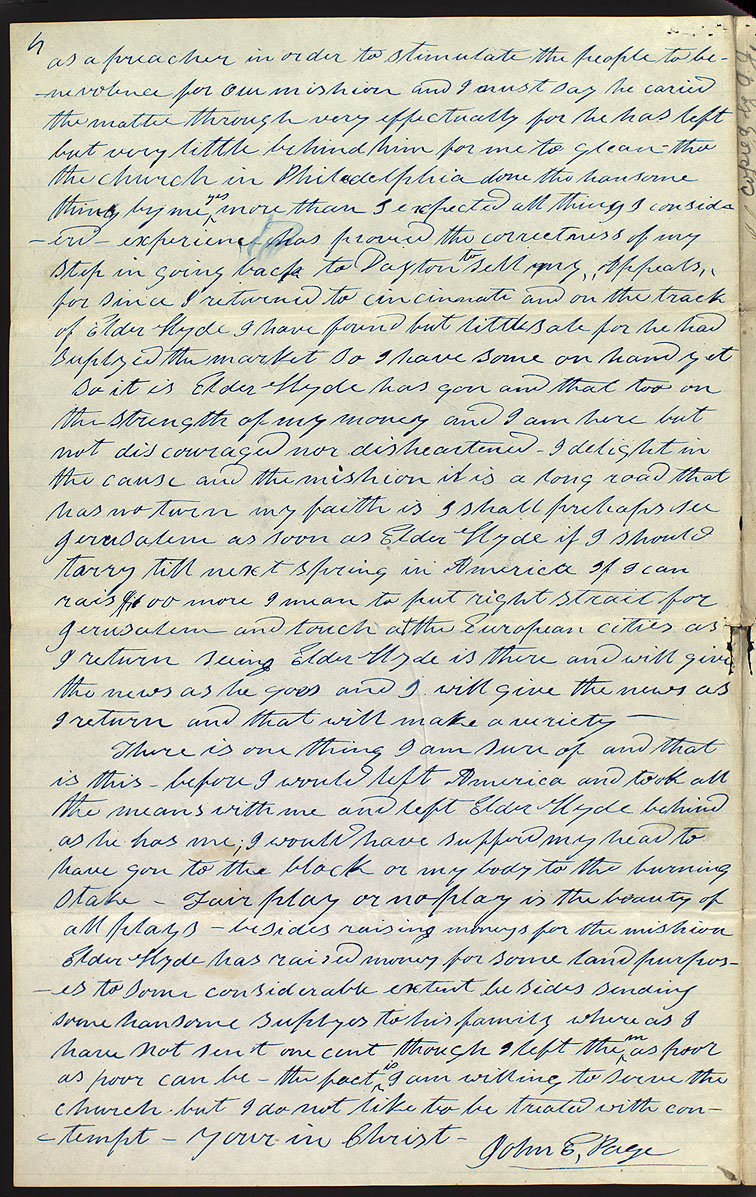 5
as a preacher in order to stimulate the people to be-
-nevolence for our mishion and I must say he caried
the matter through very effectually for he has left
but very little behind him for me to glean - tho
the church in Philadelphia done tho hansome
thing by me yes more than I expected all things consid
-erd - experience has proved the correctness of my
step in going back to Dayton to sell my ,,Appeals,,
for since I returned to cincinnate and on the track
of Elder Hyde I have found but little sale for he had
suplyed the market so I have some on hand yet
So it is Elder Hyde has gon and that too on
the strength of my money and I am here but
not discouraged nor disheartened - I delight in
the cause and the mishion it is a long road that
has no turn my faith is I shall prehaps see
Jerusalem as soon as Elder Hyde if I should
tarry till next spring in America If I can
rais 00 more I mean to put right strait for
Jerusalem and touch at the European cities as
I return seeing Elder Hyde is there and will give
the news as he goes and I will give the news as
I return and that will make a veriety —
There is one thing I am sure of and that
is this - before I would left America and took all
the means with me and left Elder Hyde behind
as he has me; I would have sufferd my head to
have gon to the block or my body to the burning
stake - Fair play or no play is the beauty of
all plays - besides raising moneys for the mishion
Elder Hyde has raised money for some land purpos-
-es to some considerable extent besides sending
some hansome suplyes to his family where as I
have not sent one cent though I left them as poor
as poor can be - the fact is I am willing to serve the
church but I do not like to be treated with con-
-tempt - Your in Christ -
John E, Page
copied by